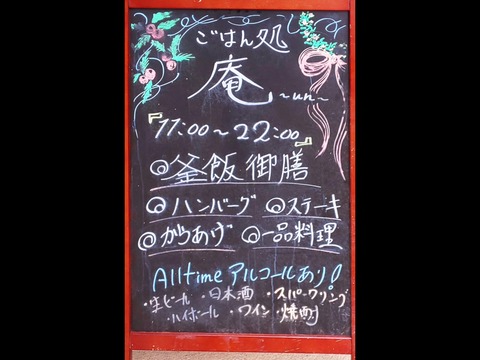 ごはん処
庵 ~un~
『11:00~22:00』
◎釜飯御膳
◎ハンバーグ ◎ステーキ
◎からあげ ◎一品料理
Alltime アルコールあり!
・生ビール ・日本酒 ・スパークリング
・ハイボール ・ワイン ・焼酎